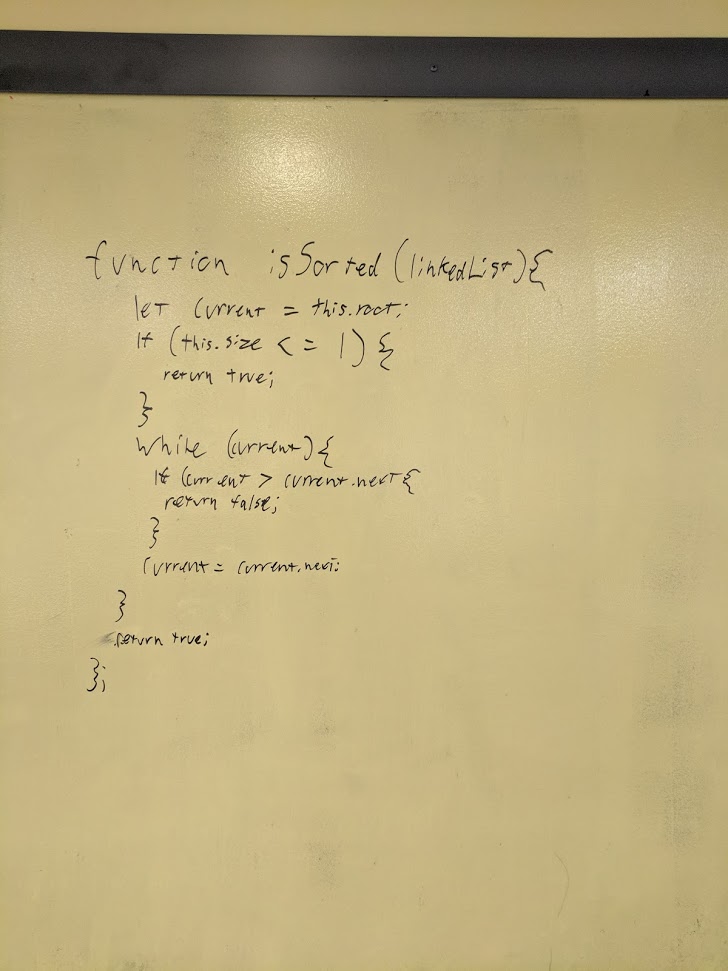 function isSorted(linkedList){
let current = this.root;
if (this.size <= 1) {
return true;
}
while (current) {
if (current > current.next {
return false;
}
current = current.next;
}
return true;
};